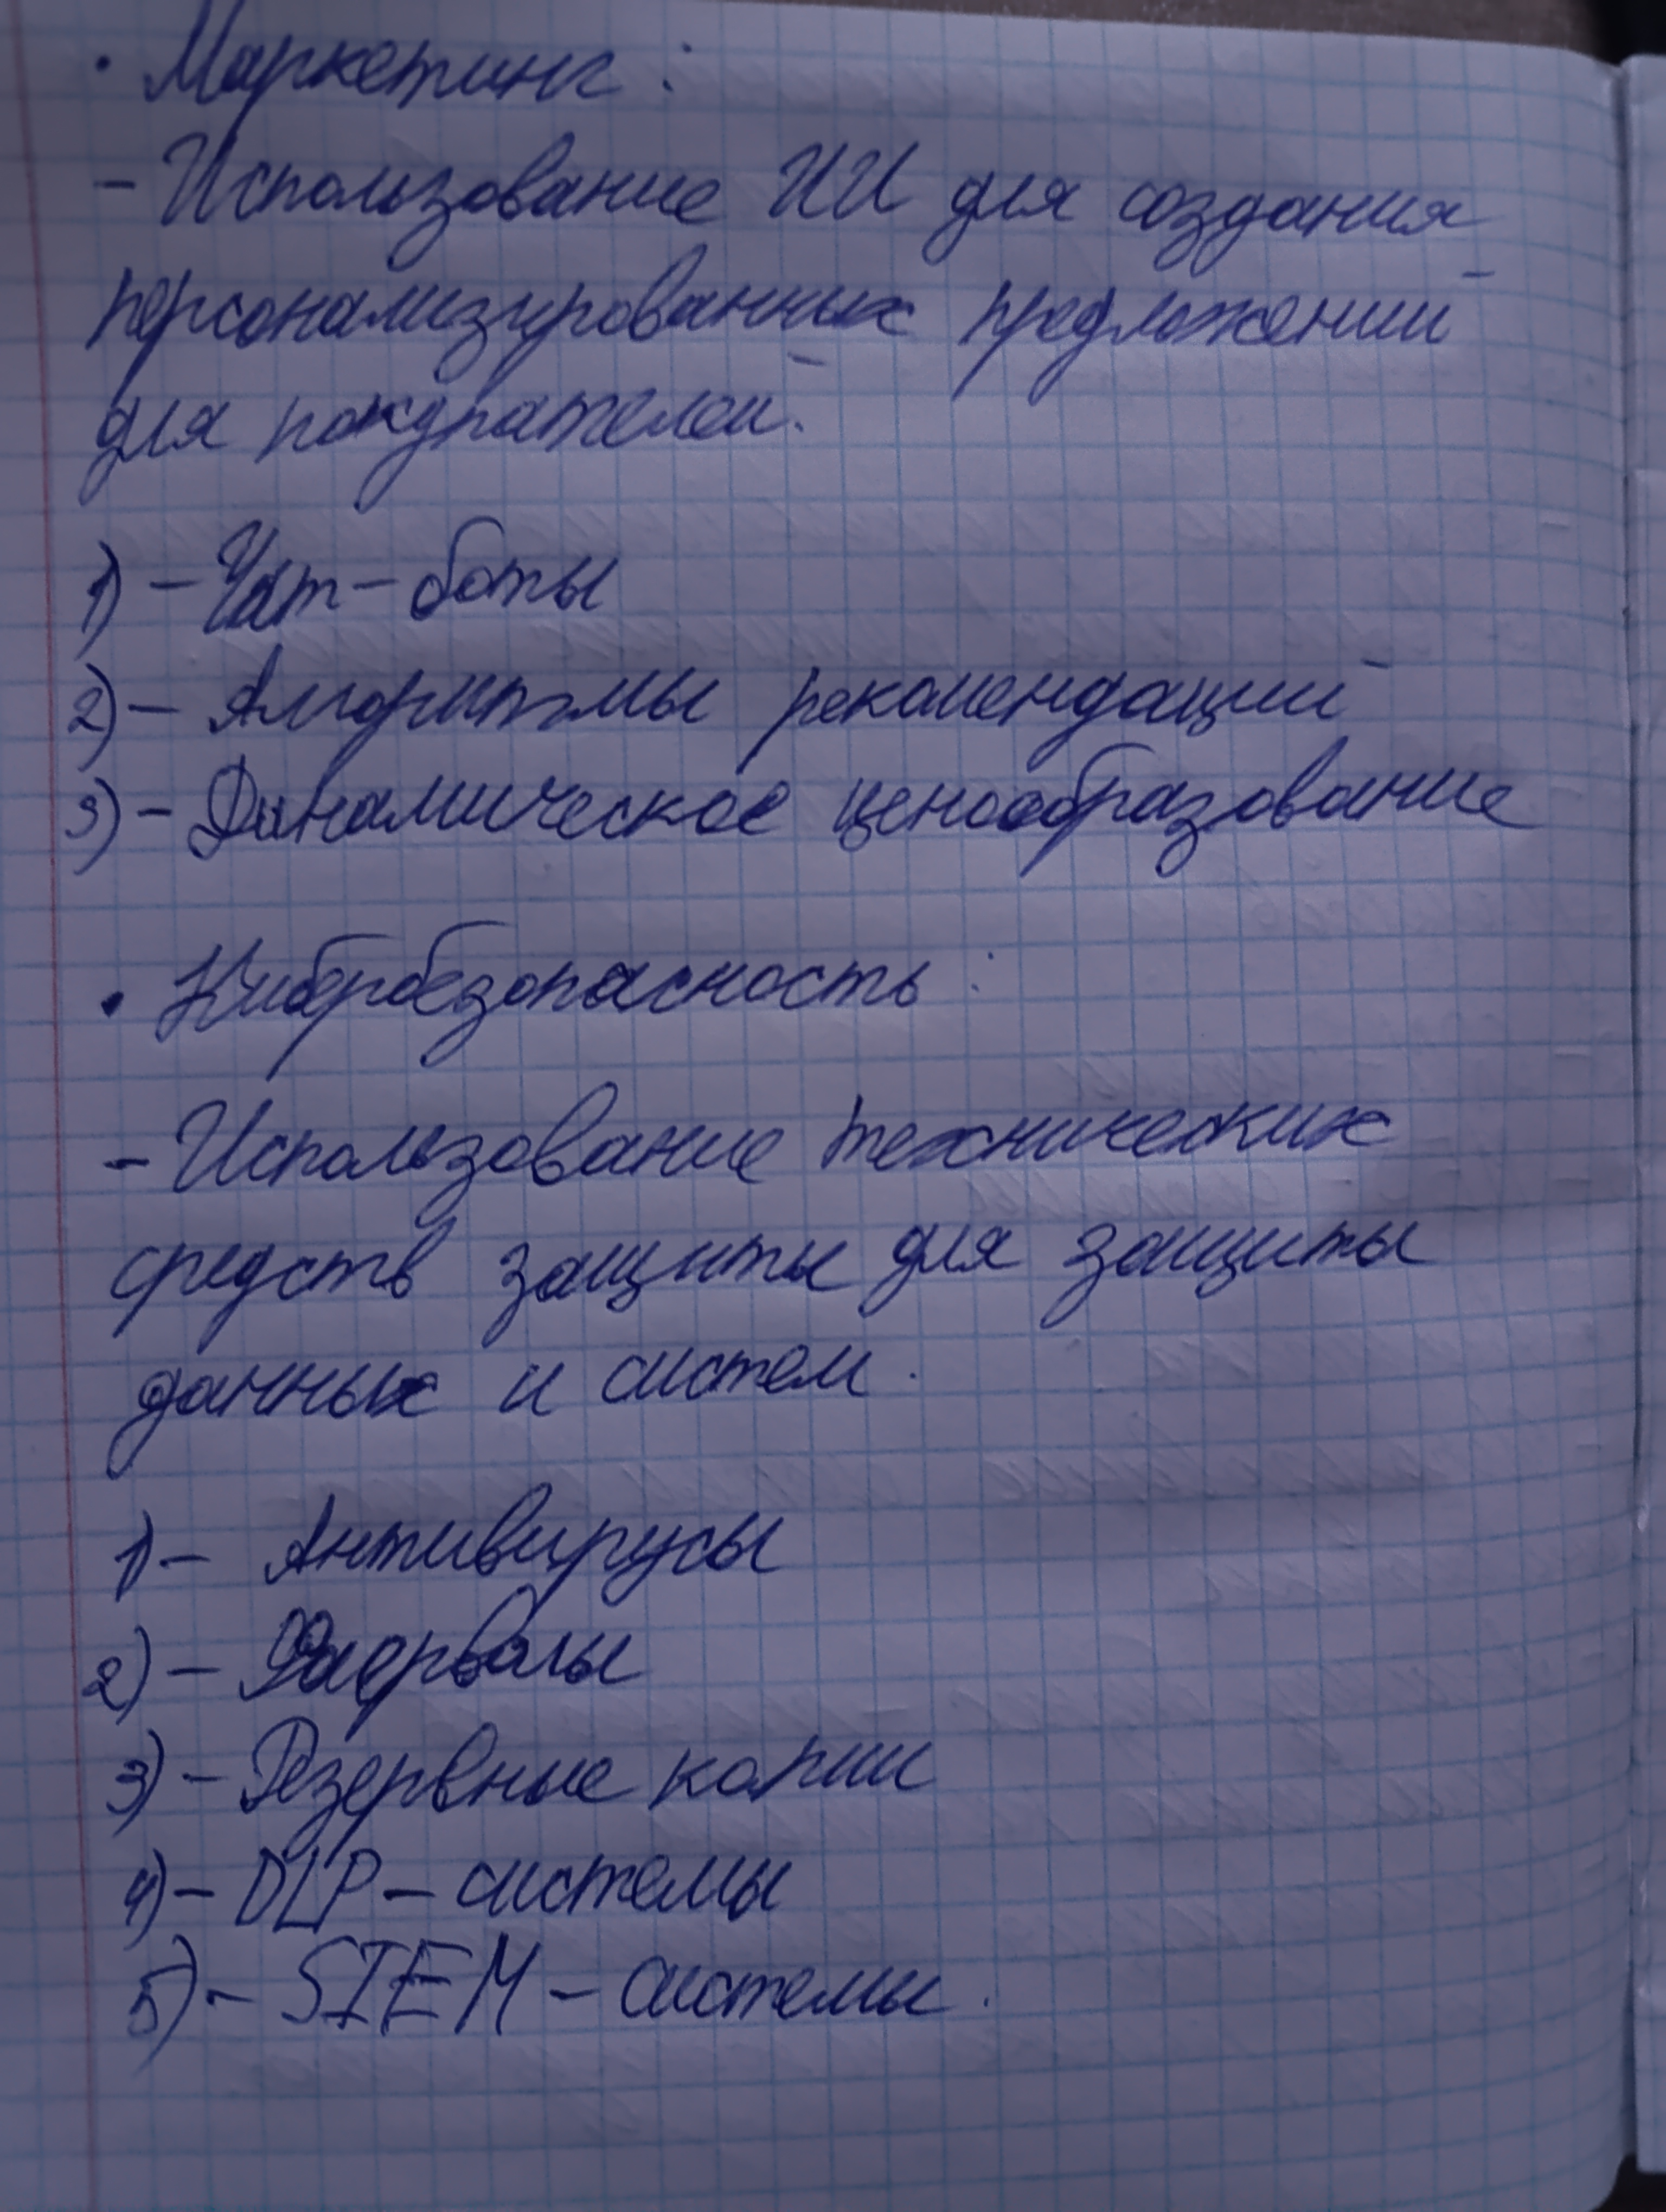 • Маркетинг:
- Использование ИИ для создания
персонализированных предложений
для покупателей.
1) - Чат-боты
2) - Алгоритмы рекомендаций
3) - Динамическое ценообразование
• Кибербезопасность:
- Использование технических
средств защиты для защиты
данных и систем.
1) - Антивирусы
2) - Фаерволы
3) - Резервные копии
4) - DLP - системы
5) - STEM - системы.